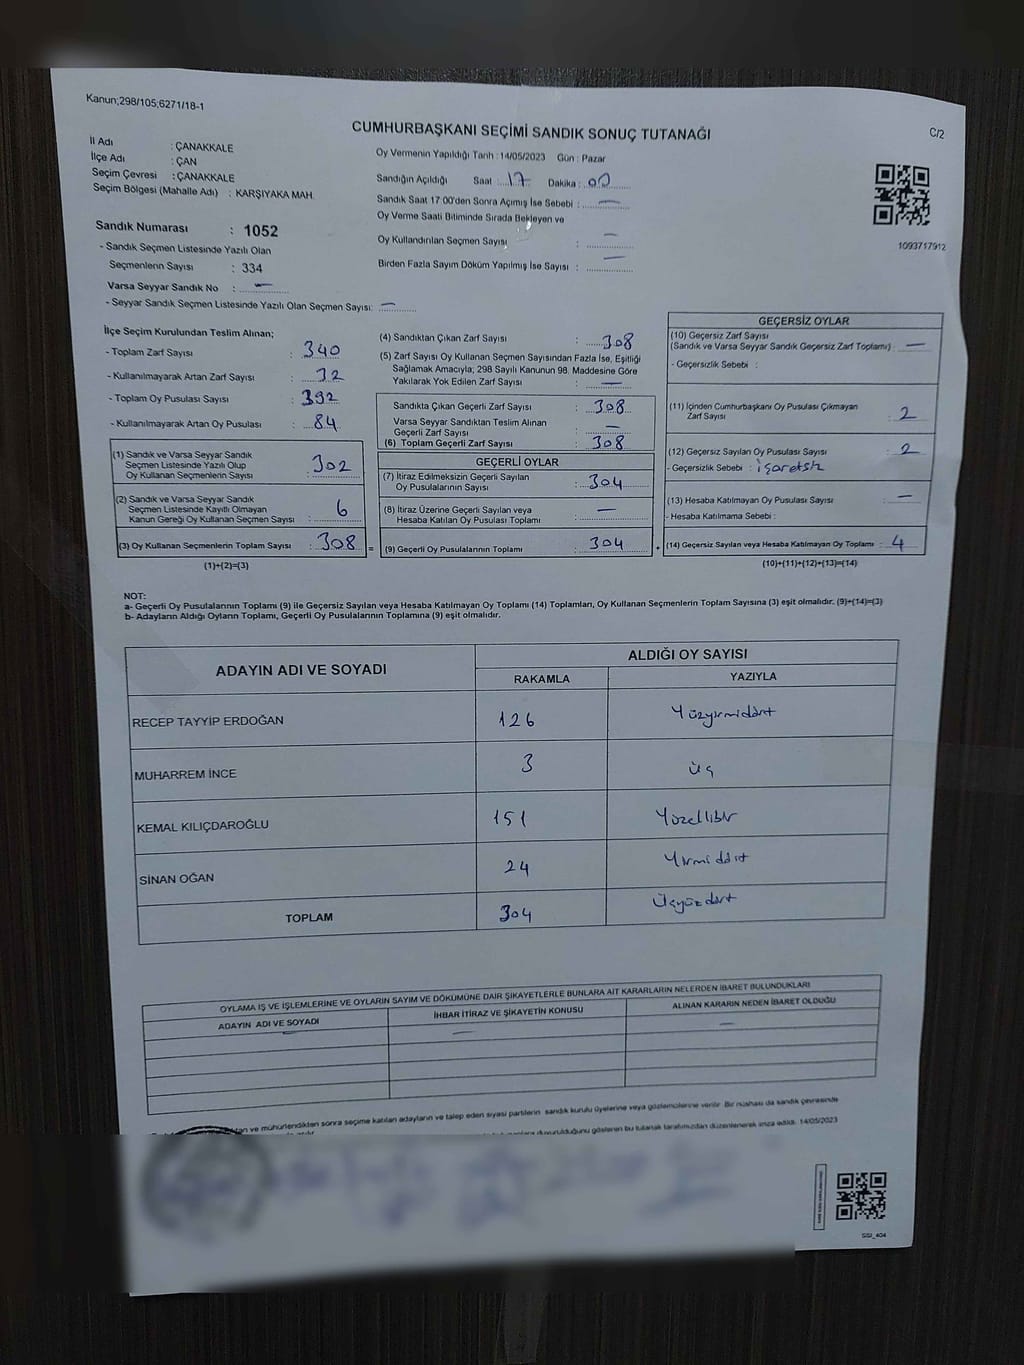 Kanun;298/105;6271/18-1
CUMHURBAŞKANI SEÇİMİ SANDIK SONUÇ TUTANAĞI
C/2
İl Adı : ÇANAKKALE
İlçe Adı : ÇAN
Seçim Çevresi : ÇANAKKALE
Seçim Bölgesi (Mahalle Adı) : KARŞIYAKA MAH.
Oy Vermenin Yapıldığı Tarih : 14/05/2023 Gün : Pazar
Sandığın Açıldığı Saat : 17 Dakika : 00
Sandık Saat 17:00'den Sonra Açımış İse Sebebi : —
Oy Verme Saati Bitiminde Sırada Bekleyen ve
Oy Kullandırılan Seçmen Sayısı : —
Birden Fazla Sayım Döküm Yapılmış İse Sayısı : —
1093717912
Sandık Numarası : 1052
- Sandık Seçmen Listesinde Yazılı Olan
Seçmenlerin Sayısı : 334
Varsa Seyyar Sandık No : —
- Seyyar Sandık Seçmen Listesinde Yazılı Olan Seçmen Sayısı: —
İlçe Seçim Kurulundan Teslim Alınan;
- Toplam Zarf Sayısı : 340
- Kullanılmayarak Artan Zarf Sayısı : 32
- Toplam Oy Pusulası Sayısı : 392
- Kullanılmayarak Artan Oy Pusulası : 84
(1) Sandık ve Varsa Seyyar Sandık
Seçmen Listesinde Yazılı Olup
Oy Kullanan Seçmenlerin Sayısı : 302
(2) Sandık ve Varsa Seyyar Sandık
Seçmen Listesinde Kayıtlı Olmayan
Kanun Gereği Oy Kullanan Seçmen Sayısı : 6
(3) Oy Kullanan Seçmenlerin Toplam Sayısı : 308
(1)+(2)=(3)
(4) Sandıktan Çıkan Zarf Sayısı : 308
(5) Zarf Sayısı Oy Kullanan Seçmen Sayısından Fazla İse, Eşitliği
Sağlamak Amacıyla; 298 Sayılı Kanunun 98. Maddesine Göre
Yakılarak Yok Edilen Zarf Sayısı : —
Sandıkta Çıkan Geçerli Zarf Sayısı : 308
Varsa Seyyar Sandıktan Teslim Alınan
Geçerli Zarf Sayısı : —
(6) Toplam Geçerli Zarf Sayısı : 308
GEÇERLİ OYLAR
(7) İtiraz Edilmeksizin Geçerli Sayılan
Oy Pusulalarının Sayısı : 304
(8) İtiraz Üzerine Geçerli Sayılan veya
Hesaba Katılan Oy Pusulası Toplamı : —
= (9) Geçerli Oy Pusulalarının Toplamı : 304
GEÇERSİZ OYLAR
(10) Geçersiz Zarf Sayısı
(Sandık ve Varsa Seyyar Sandık Geçersiz Zarf Toplamı) : —
- Geçersizlik Sebebi :
(11) İçinden Cumhurbaşkanı Oy Pusulası Çıkmayan
Zarf Sayısı : 2
(12) Geçersiz Sayılan Oy Pusulası Sayısı : 2
- Geçersizlik Sebebi : işaretsiz
(13) Hesaba Katılmayan Oy Pusulası Sayısı : —
- Hesaba Katılmama Sebebi :
+ (14) Geçersiz Sayılan veya Hesaba Katılmayan Oy Toplamı : 4
(10)+(11)+(12)+(13)=(14)
NOT:
a- Geçerli Oy Pusulalarının Toplamı (9) ile Geçersiz Sayılan veya Hesaba Katılmayan Oy Toplamı (14) Toplamları, Oy Kullanan Seçmenlerin Toplam Sayısına (3) eşit olmalıdır. (9)+(14)=(3)
b- Adayların Aldığı Oyların Toplamı, Geçerli Oy Pusulalarının Toplamına (9) eşit olmalıdır.
ADAYIN ADI VE SOYADI
ALDIĞI OY SAYISI
RAKAMLA YAZIYLA
RECEP TAYYİP ERDOĞAN 126 Yüzyirmidört
MUHARREM İNCE 3 Üç
KEMAL KILIÇDAROĞLU 151 Yüzellibir
SİNAN OĞAN 24 Yirmidört
TOPLAM 304 Üçyüzdört
OYLAMA İŞ VE İŞLEMLERİNE VE OYLARIN SAYIM VE DÖKÜMÜNE DAİR ŞİKAYETLERLE BUNLARA AİT KARARLARIN NELERDEN İBARET BULUNDUKLARI
ADAYIN ADI VE SOYADI İHBAR İTİRAZ VE ŞİKAYETİN KONUSU ALINAN KARARIN NEDEN İBARET OLDUĞU
— — —
ve mühürlendikten sonra seçime katılan adayların ve talep eden siyasi partilerin sandık kurulu üyelerine veya gözlemcilerine verilir. Bir nüshası da sandık çevresinde
duyurulduğunu gösteren bu tutanak tarafımızdan düzenlenerek imza edildi. 14/05/2023
SSI_404